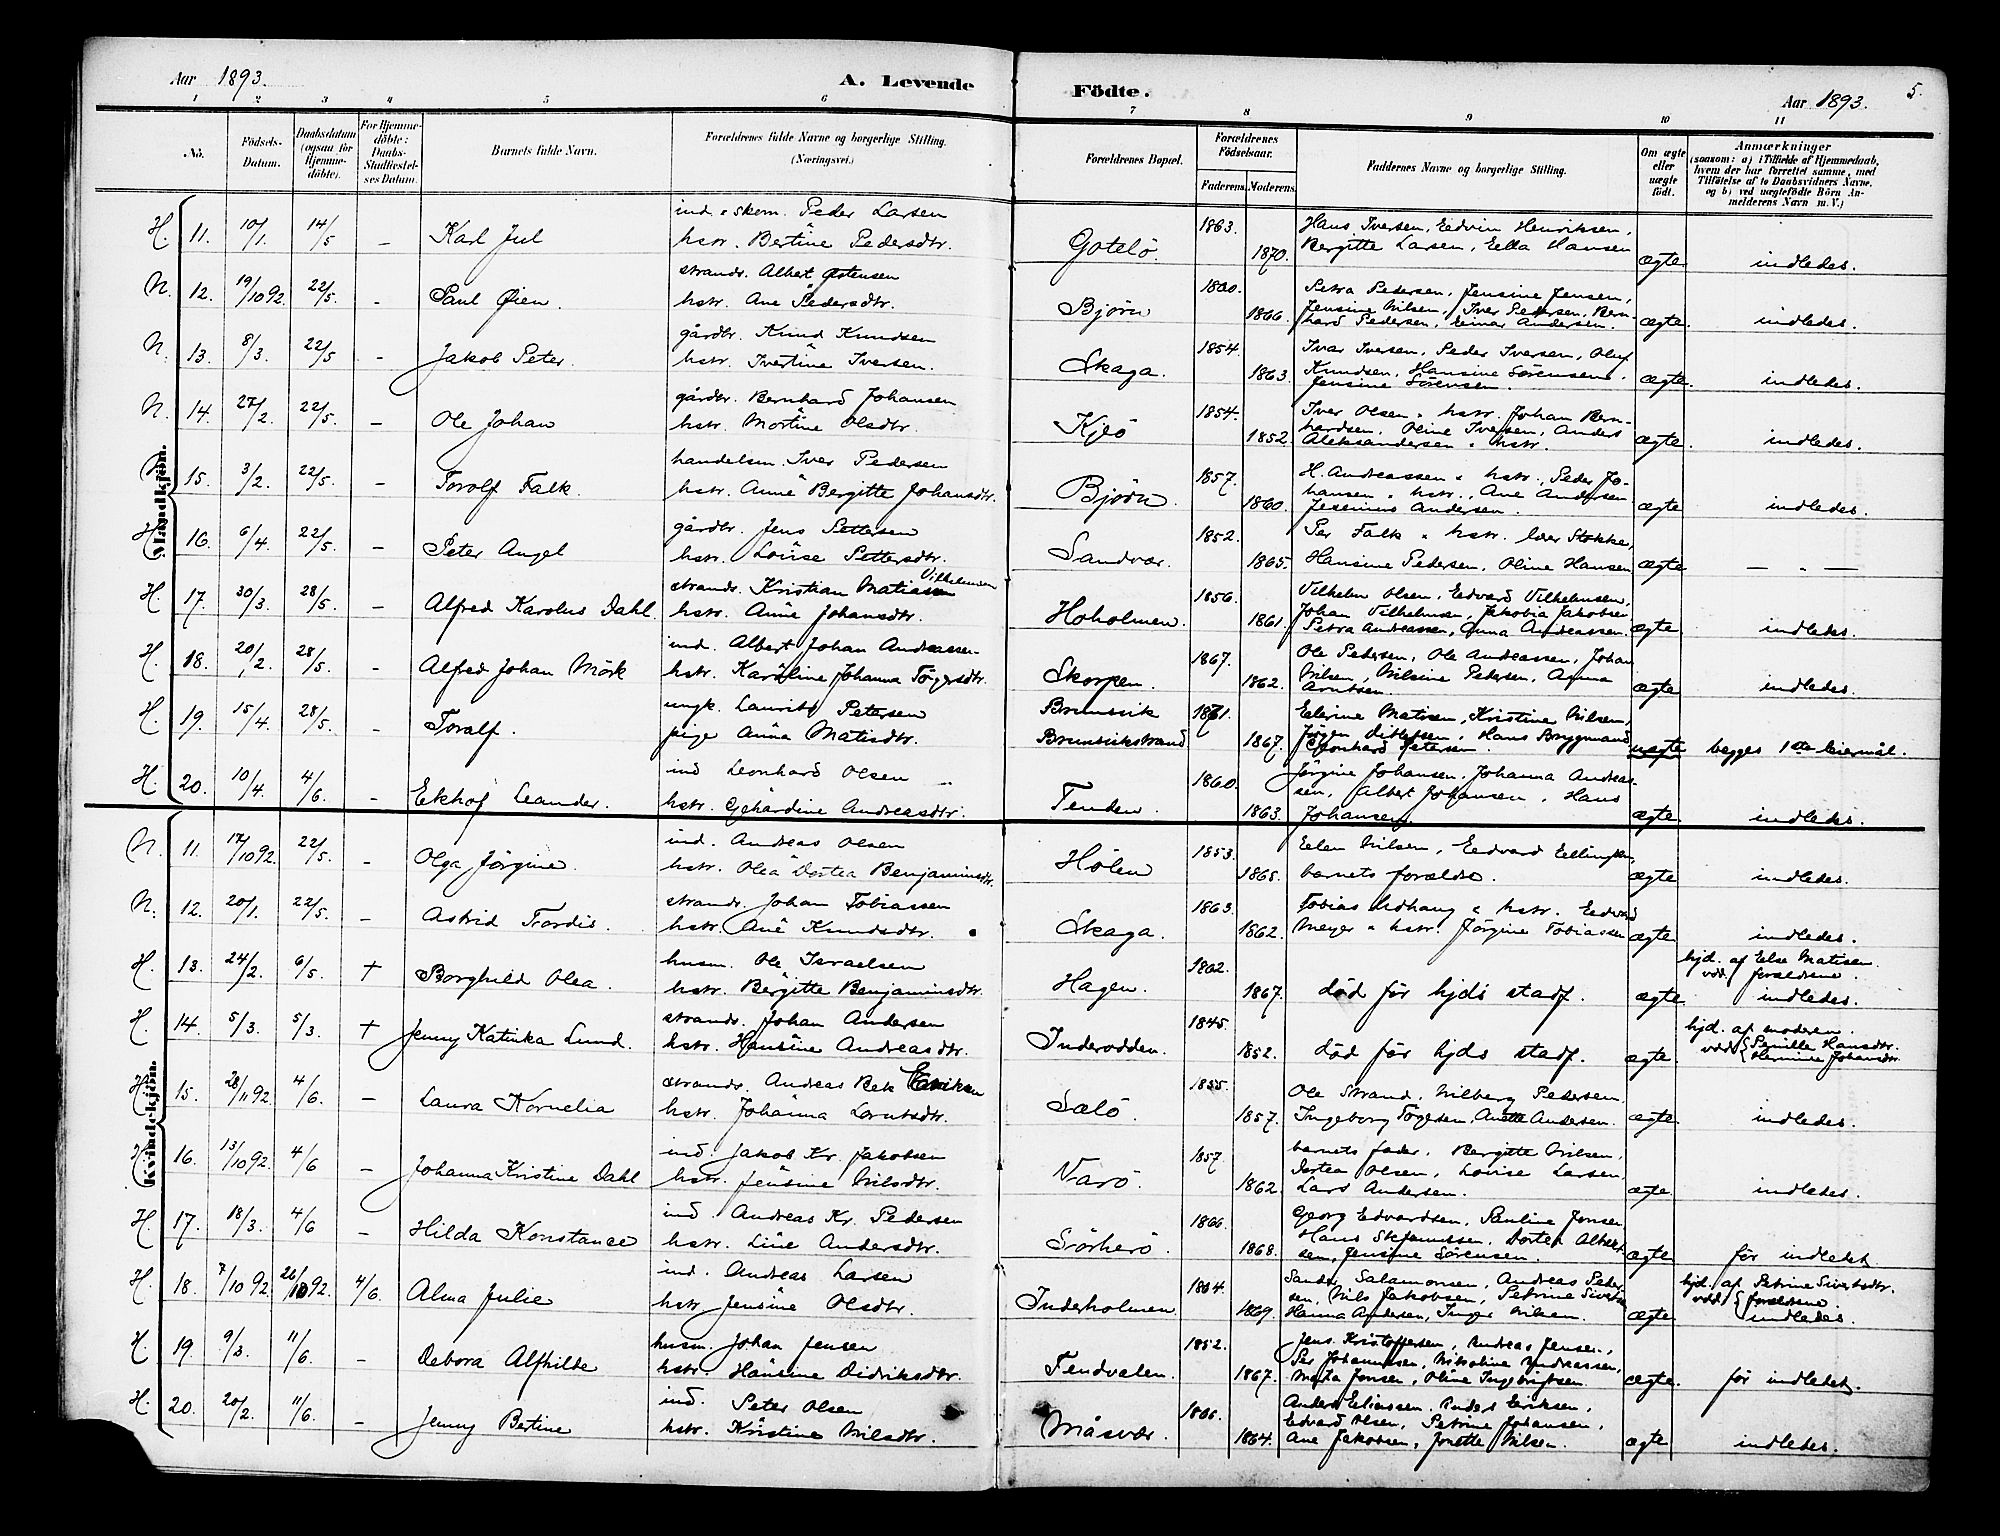 Aar 1893.
A. Levende Födte.
Aar 1893.
5.
1 2 3 4 5 6 7 8 9 10 11
No.
Födsels-Datum.
Daabsdatum (ogsaa for Hjemmedöbte).
For Hjemmedöbte: Daabs-Stadfæstelses Datum.
Barnets fulde Navn.
Forældrenes fulde Navne og borgerlige Stilling. (Næringsvei.)
Forældrenes Bopæl.
Forældrenes Födselsaar.
Faderens. Moderens.
Faddernes Navne og borgerlige Stilling.
Om ægte eller uægte födt.
Anmærkninger
(saasom: a) i Tilfælde af Hjemmedaab,
hvem der har forrettet samme, med
Tilföielse af to Daabsvidners Navne,
og b) ved uægtefödte Börn An-
melderens Navn m. V.)
Mandkjön.
H. 11. 10/1. 14/5 – Karl Jul
ind. & skom. Peder Larsen
hstr. Bertine Pedersdtr.
Gotelö. 1863. 1870.
Hans Iversen, Edvin Henriksen,
Bergitte Larsen, Ella Hansen
ægte indledes.
N. 12. 19/10 92. 22/5. – Paul Øien.
strands. Albert Østensen
hstr. Ane Pedersdtr.
Bjørn 1866.
Petra Pedersen, Jensine Jensen,
Jensine Nilsen, Iver Pedersen, Bern-
hard Pedersen, Einar Andersen.
ægte. indledes.
N. 13. 8/3. 22/5 – Jakob Peter.
gårdbr. Knud Knudsen
hstr. Ivertine Iversen.
Skaga. 1854. 1863.
Ivar Iversen, Peder Iversen, Oluf
Knudsen, Hansine Sørensen,
Jensine Sörensen.
ægte. indledes.
N. 14. 27/2. 22/5. – Ole Johan
gårdbr. Bernhard Johansen
hstr. Mortine Olsdtr.
Kjeö 1854. 1852.
Iver Olsen & hstr. Johan Bern-
hardsen, Oline Iversen, Anders
Aleksandersen & hstr.
ægte. indledes.
N. 15. 3/2. 22/5. – Torolf Falk.
handelsm. Iver Pedersen
hstr. Ane Bergitte Johansdtr.
Bjørn. 1857. 1860.
H. Andreassen & hstr., Peder Jo-
hansen & hstr., Ane Andersen
Jesenius Andersen.
ægte indledes.
H. 16. 6/4. 22/5. – Peter Angel
gårdbr. Jens Pettersen
hstr. Lovise Pettersdtr.
Sandvær. 1852. 1865.
Per Falk & hstr.
Hansine Pedersen, Oline Hansen
ægte — " —
H. 17. 30/3. 28/5. – Alfred Karolus Dahl.
strands. Kristian Vilhelmsen
hstr. Ane Johansdtr.
Hoholmen. 1856. 1861.
Vilhelm Olsen, Edvard Vilhelmsen,
Johan Vilhelmsen, Jakobia Jakobsen
Petra Andreassen, Anna Andreassen.
ægte indledes.
H. 18. 20/2. 28/5. – Alfred Johan Mörk
ind. Albert Johan Andreassen
hstr. Karoline Johanna Tögersdtr.
Skorpen. 1867. 1862.
Ole Pedersen, Ole Andreassen, Johan
Nilsen, Nilsine Pedersen, Anna
Arntsen.
ægte indledes.
H. 19. 15/4. 28/5. – Toralf.
ungk. Laurits Petersen
pige Anna Matisdtr.
Brunsvik
Brunsvikstrand 1867.
Elerine Matisen, Kristine Nilsen,
Jørgen Ditlefsen, Hans Brygmand
Leonhard Petersen.
uægte begges 1ste leiermål.
H. 20. 10/4. 4/6. – Ekhof Leander.
ind Leonhard Olsen
hstr. Gjehardine Andreasdtr.
Tenden. 1860. 1863.
Jörgine Johansen, Johanna Andreas-
sen, Albert Johansen, Hans
Johansen
ægte. indledes.
Kvindekjön.
N. 11. 17/10 92. 22/5. – Olga Jörgine.
ind. Andreas Olsen
hstr. Olea Dortea Benjaminsdtr.
Hølen 1853. 1865.
Elen Nilsen, Edvard Ellingsen,
barnets forældre.
ægte indledes.
N. 12. 20/1. 22/5. – Astrid Tordis.
strands. Johan Tobiassen
hstr. Ane Knudsdtr.
Skaga. 1863. 1862.
Tobias & hstr. Edvard
Meyer & hstr. Jörgine Tobiassen
ægte indledes.
H. 13. 24/2. 6/5. + Borghild Olea.
husm. Ole Israelsen
hstr. Bergitte Benjaminsdtr.
Hagen. 1867.
död för hjds stadf.
ægte. hjd. af Else Matisen.
vdd. forældrene.
indledes.
H. 14. 5/3. 5/3. + Jenny Katinka Lund.
strands. Johan Andersen
hstr. Hansine Andreasdtr.
Inderodden. 1845. 1852.
död för hjds stadf.
ægte. hjd. af moderen.
vdd. { Pernille Hansdtr.
Hermine Johansdtr.
H. 15. 28/11 92. 4/6. – Laura Kornelia
strands. Andreas Bek Eriksen
hstr. Johanna Lorntsdtr.
Sælö. 1855. 1857.
Ole Strand, Nilberg Pedersen.
Ingeborg Tögersen, Anette Andersen.
ægte indledes.
H. 16. 13/10 92. 4/6 – Johanna Kristine Dahl
ind. Jakob Kr. Jakobsen
hstr. Jensine Nilsdtr.
Varö. 1857. 1862.
barnets fader, Bergitte Nilsen,
Dortea Olsen, Lovise Larsen
Lars Andersen.
ægte. indledes.
H. 17. 18/3. 4/6 – Hilda Konstance
ind. Andreas Kr. Pedersen
hstr. Line Andersdtr.
Sörherö. 1866. 1868.
Georg Edvardsen, Pauline Jonsen
Hans Stefanussen, Dortea Albert-
sen, Jensine Sörensen.
ægte för indledet
H. 18. 7/10 92 26/10 92. 4/6. Alma Julie
ind. Andreas Larsen
hstr. Jensine Olsdtr.
Inderholmen. 1864. 1869.
Sander Salamonsen, Andreas Peder-
sen, Nils Jakobsen, Petrine Siverts-
Hanna Andersen, Inger Nilsen.
ægte hjd. af Petrine Sivertsdtr.
vdd. { forældrene.
indledes.
H. 19. 9/3. 11/6. – Debora Alfhilde
husm. Johan Jensen
hstr. Hansine Didriksdtr.
Tendvalen. 1852. 1867.
Jens Kristoffersen, Andreas Jensen,
Per Johannesen, Nikoline Andreassen,
Marta Jonsen, Oline Ingebrigtsen.
ægte. för indledet.
H. 20. 20/2. 11/6. – Jenny Bertine
ind. Peter Olsen
hstr. Kristine Nilsdtr.
Måsvær. 1866. 1864.
Anders Eliassen, Anders Eriksen,
Edvard Olsen, Petrine Johansen,
Ane Jakobsen, Jonette Nilsen.
ægte indledes.